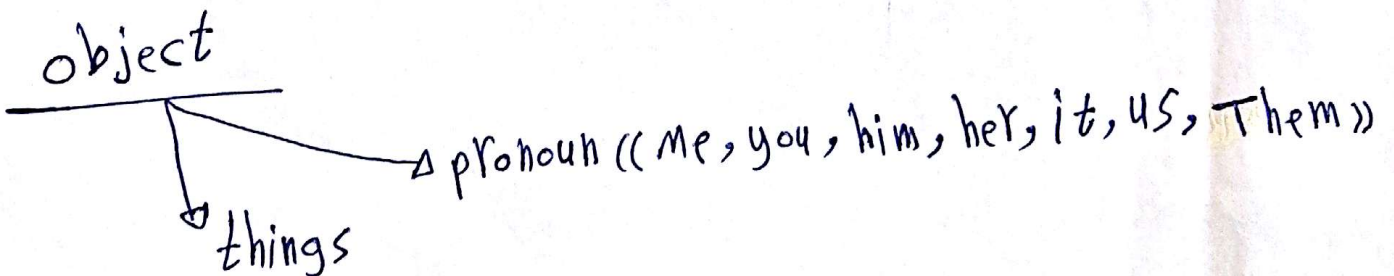 object
pronoun ((me, you, him, her, it, us, Them))
things